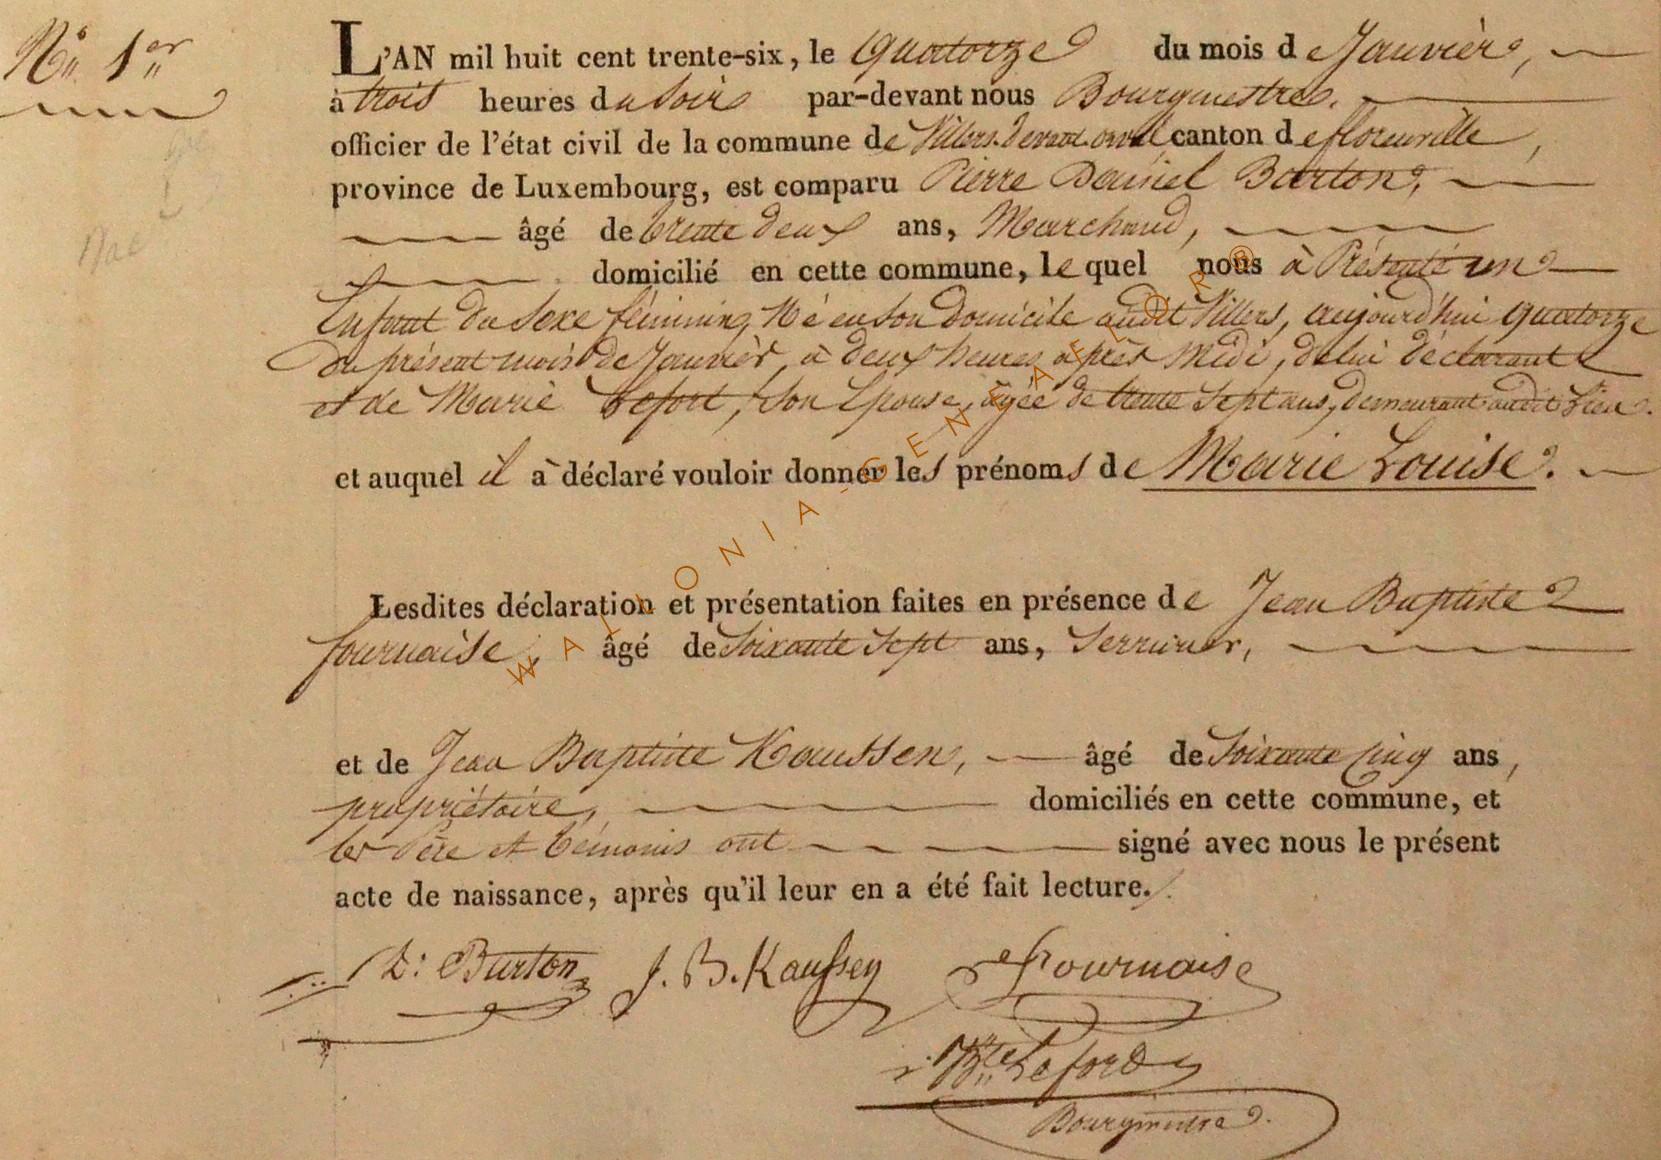 N.° 1.er
L'AN mil huit cent trente-six, le Quatorze du mois de Janvièr,
à trois heures du Soir par-devant nous Bourgmestre.
officier de l'état civil de la commune de Villers devant orval canton de florenville,
province de Luxembourg, est comparu Pierre Dainiel Burton,
âgé de trente deux ans, Marchand,
domicilié en cette commune, le quel nous à Présenté un
Enfant du Sexe féminin, Né en son Domicile audit Villers, aujourd'hui quatorze
du présent mois de Janvièr, à deux heures après Midi, de lui déclarant
et de Marie Lefort, Son Epouse, agée de trente Sept ans, demeurant audit Lieu.
et auquel il à déclaré vouloir donner les prénoms de Marie Louise.
Lesdites déclaration et présentation faites en présence de Jean Baptiste
fournaise, âgé de Soixante Sept ans, Serrurier,
et de Jean Baptiste Kaussen, âgé de Soixante Cinq ans,
propriétaire, domiciliés en cette commune, et
les Père et témoins ont signé avec nous le présent
acte de naissance, après qu'il leur en a été fait lecture.
D: Burton J. B. Kaussen Fournaise
Lefort
Bourgmestre.
WALLONIA-GENEAFLOR®